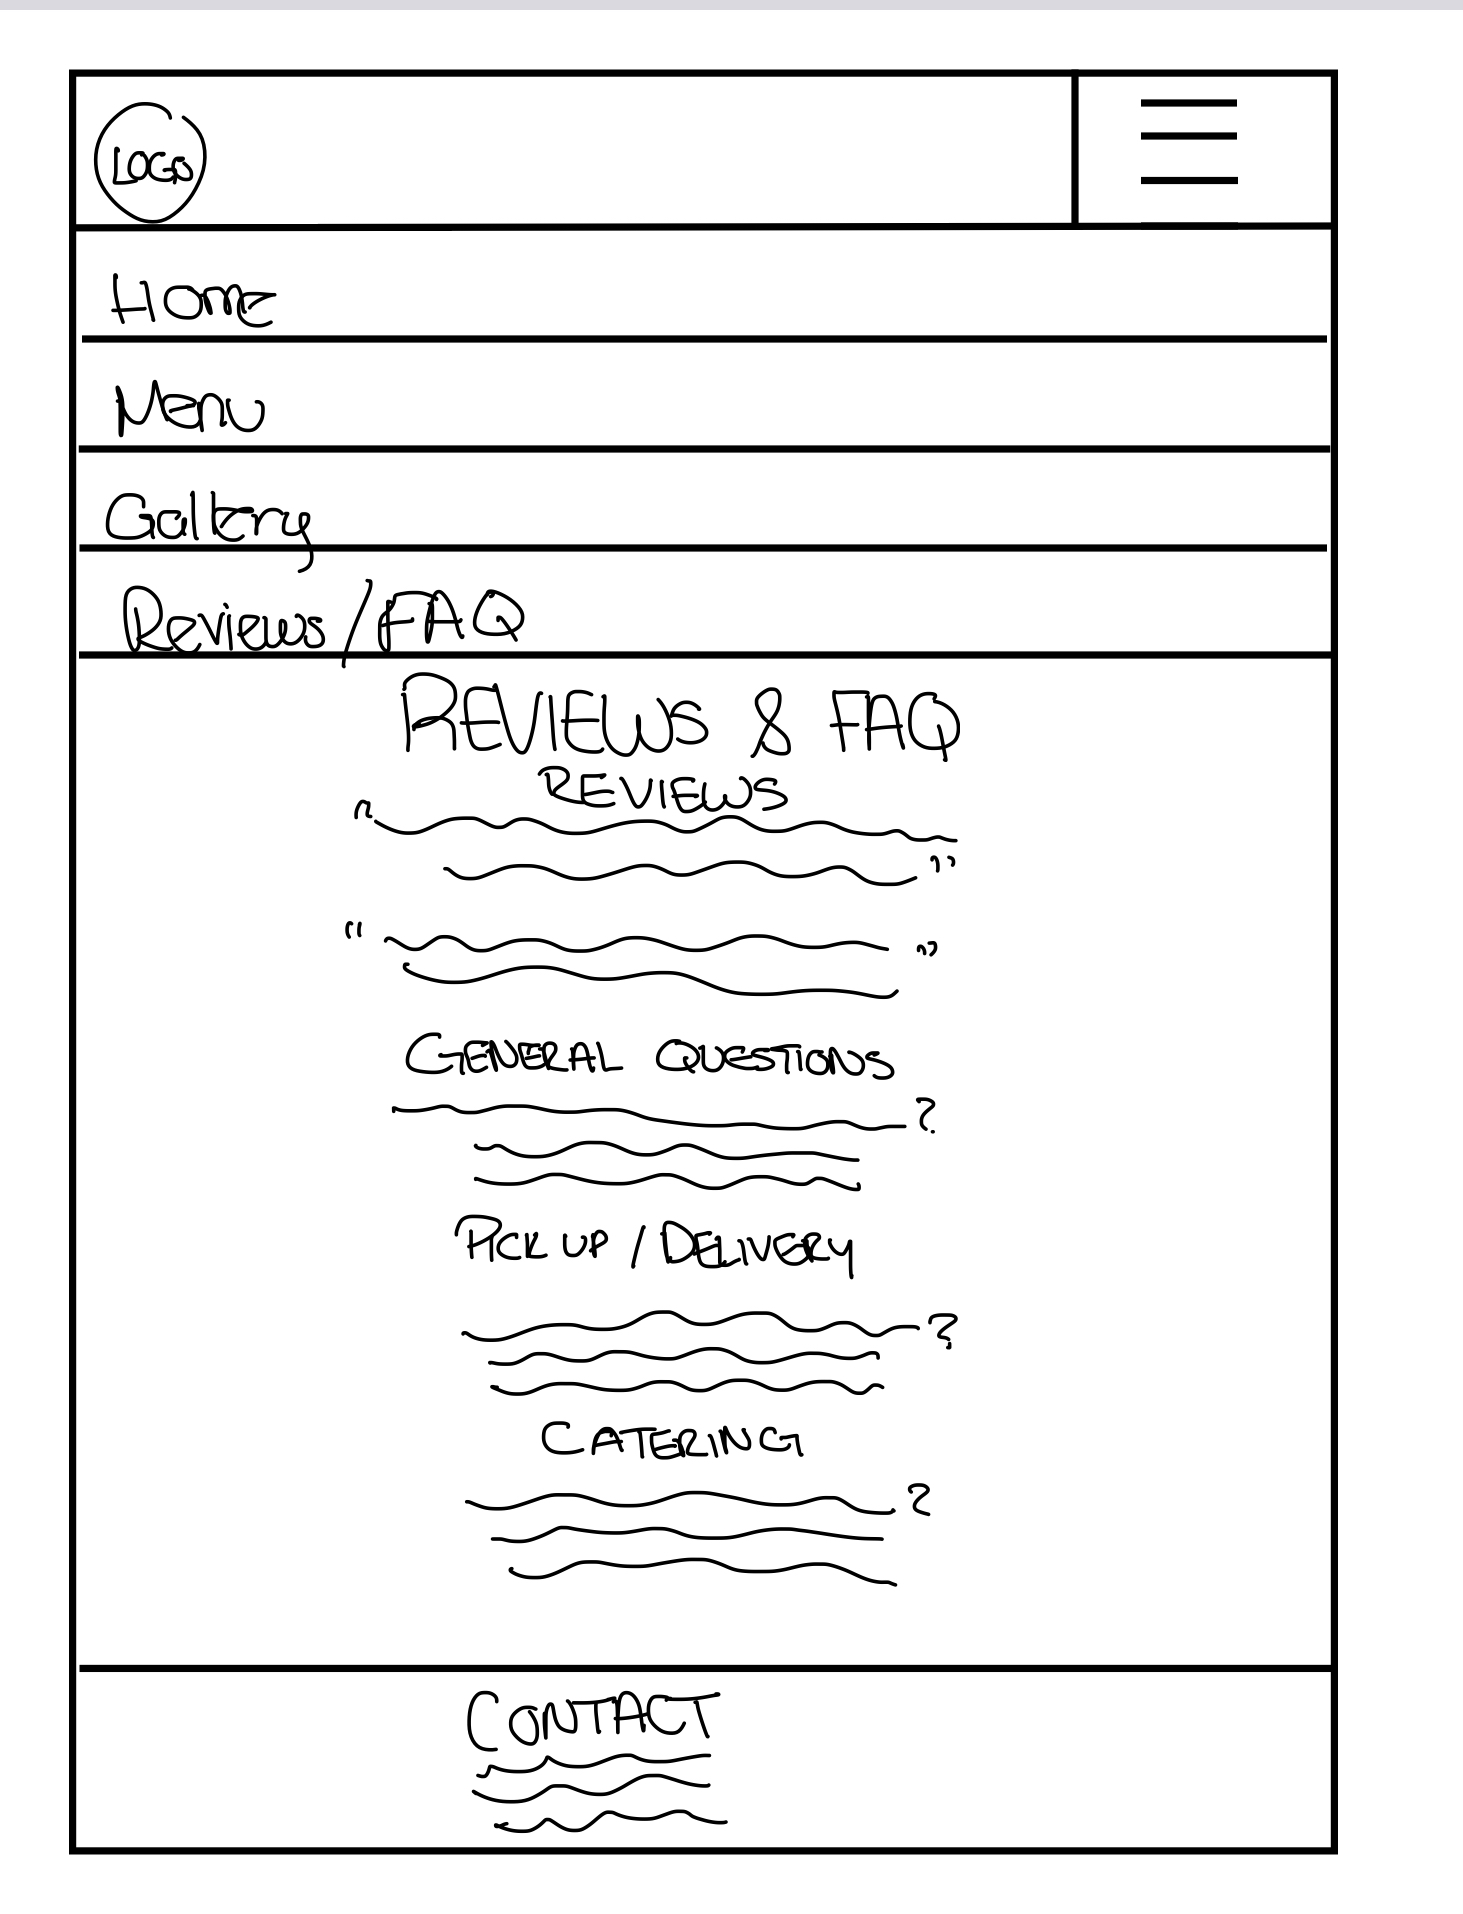 LOGO
Home
Menu
Gallery
Reviews/FAQ
REVIEWS & FAQ
REVIEWS
"
"
" "
GENERAL QUESTIONS
?
PICK UP / DELIVERY
?
CATERING
?
CONTACT